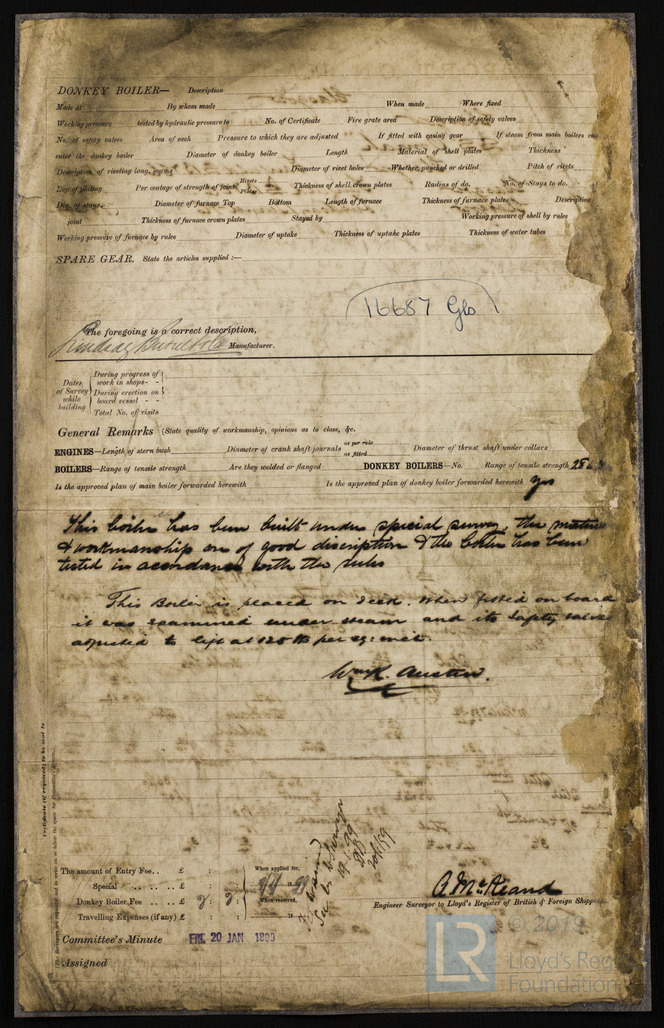 DONKEY BOILER— Description
Made at By whom made When made Where fixed
Working pressure tested by hydraulic pressure to No. of Certificate Fire grate area Description of safety valves
No. of safety valves Area of each Pressure to which they are adjusted If fitted with easing gear If steam from main boilers can
enter the donkey boiler Diameter of donkey boiler Length Material of shell plates Thickness
Description of riveting long. seams Diameter of rivet holes Whether punched or drilled Pitch of rivets
Lap of plating Per centage of strength of joint Rivets Plates Thickness of shell crown plates Radius of do. No. of Stays to do.
Dia. of stays Diameter of furnace Top Bottom Length of furnace Thickness of furnace plates Description
joint Thickness of furnace crown plates Stayed by Working pressure of shell by rules
Working pressure of furnace by rules Diameter of uptake Thickness of uptake plates Thickness of water tubes
SPARE GEAR. State the articles supplied :—
16687 Gls
The foregoing is a correct description,
Lindsay Burnet & Co Manufacturer.
Dates of Survey while building
During progress of work in shops - -
During erection on board vessel - -
Total No. of visits
General Remarks (State quality of workmanship, opinions as to class, &c.
ENGINES—Length of stern bush Diameter of crank shaft journals as per rule as fitted Diameter of thrust shaft under collars
BOILERS—Range of tensile strength Are they welded or flanged DONKEY BOILERS—No. Range of tensile strength
Is the approved plan of main boiler forwarded herewith Is the approved plan of donkey boiler forwarded herewith yes
This boiler has been built under special survey, the material
& workmanship are of good discription & the boiler has been
tested in accordance with the rules
This Boiler is placed on deck. When fitted on board
it was examined under steam and its safety valve
adjusted to lift at 120 lb per sq: inch.
Wm R. Austin.
Certificate (if required) to be sent to
The amount of Entry Fee .. £ : : When applied for,
Special .. .. .. £ : :
Donkey Boiler Fee .. .. £ 2 : 2 : When received,
Travelling Expenses (if any) £ : :
A. McKeand
Engineer Surveyor to Lloyd's Register of British & Foreign Shipping.
Committee's Minute FRI. 20 JAN 1899
Assigned
LR
© 2019
Lloyd's Reg
Foundation